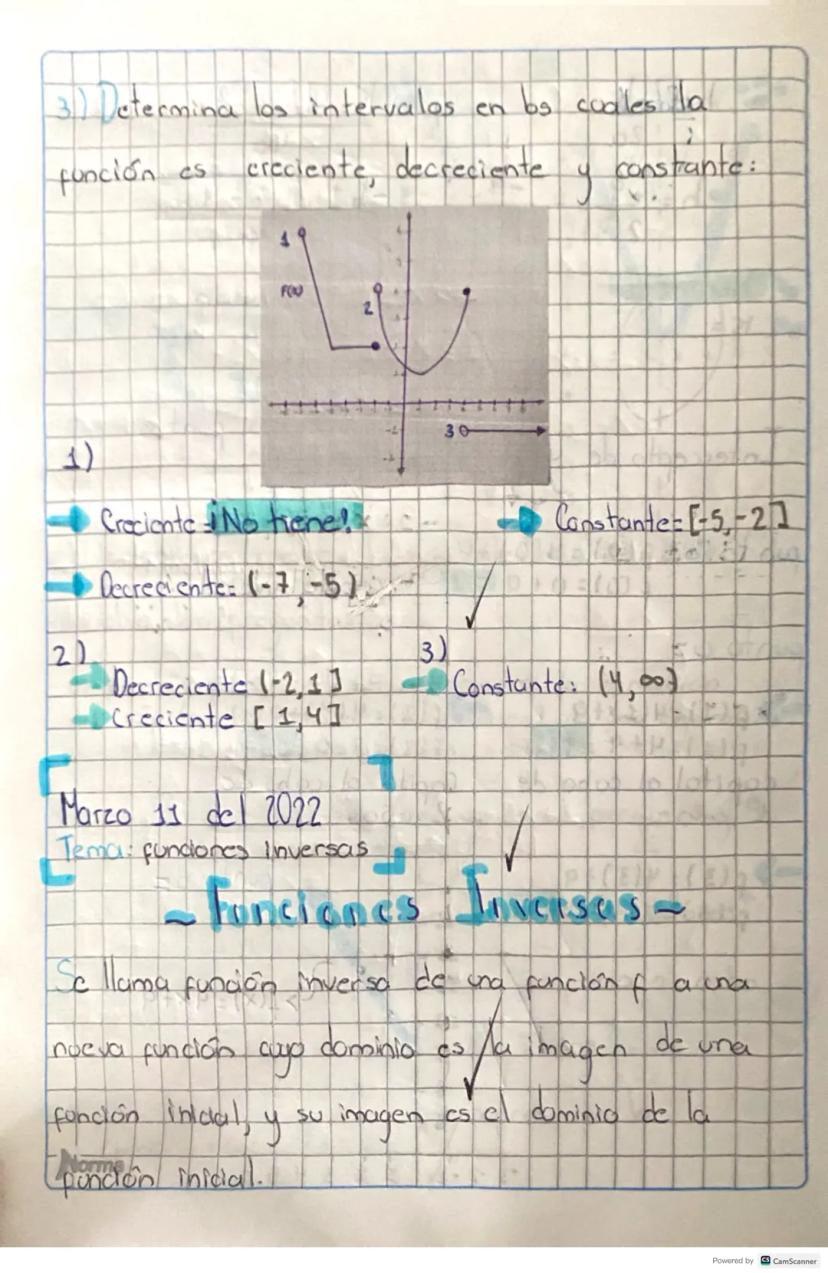 3) Determina los intervalos en los cuales la
función es creciente, decreciente y constante:
1
F(x)
2
3
1)
Creciente = ¡No tiene!
Constante = [-5, -2]
Decreciente = (-7, -5)
2)
Decreciente (-2, 1]
Creciente [1, 4]
3)
Constante: (4, ∞)
Marzo 11 del 2022
Tema: funciones inversas
~ Funciones Inversas ~
Se llama función inversa de una función f a una
nueva función cuyo dominio es la imagen de una
función inicial, y su imagen es el dominio de la
función inicial.
Norma
Powered by CS CamScanner